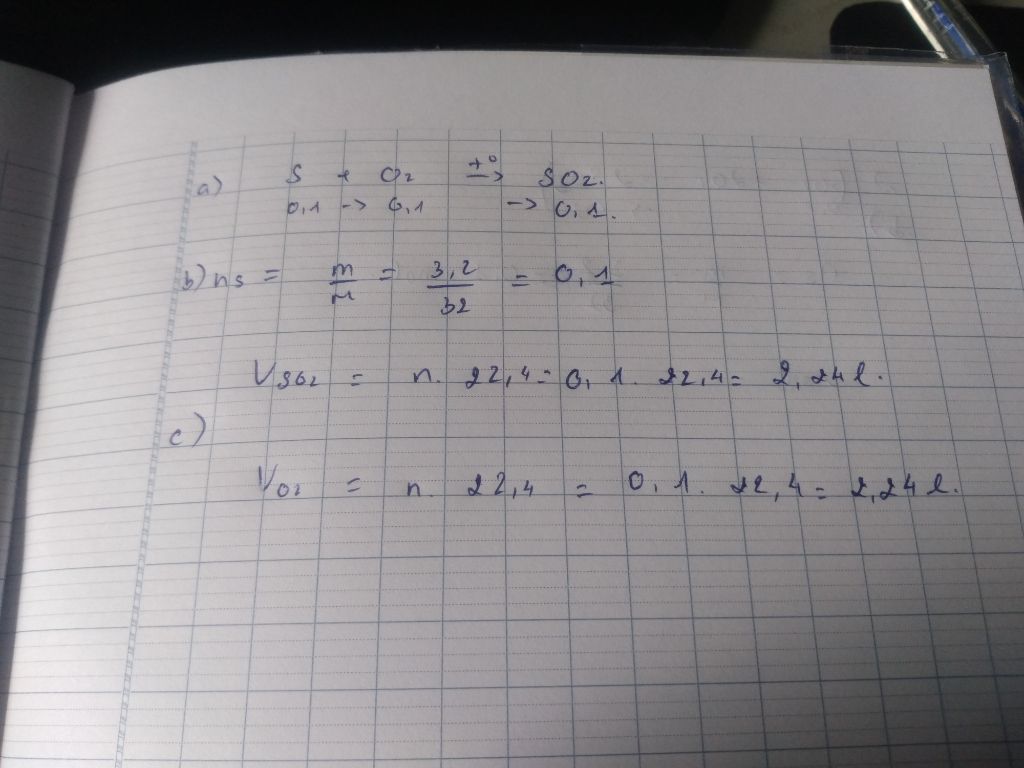 a) S + O2 t° → SO2.
0,1 → 0,1 → 0,1.
b) nS = m/M = 3,2/32 = 0,1
VSO2 = n. 22,4 = 0,1. 22,4 = 2,24 l.
c)
VO2 = n. 22,4 = 0,1. 22,4 = 2,24 l.